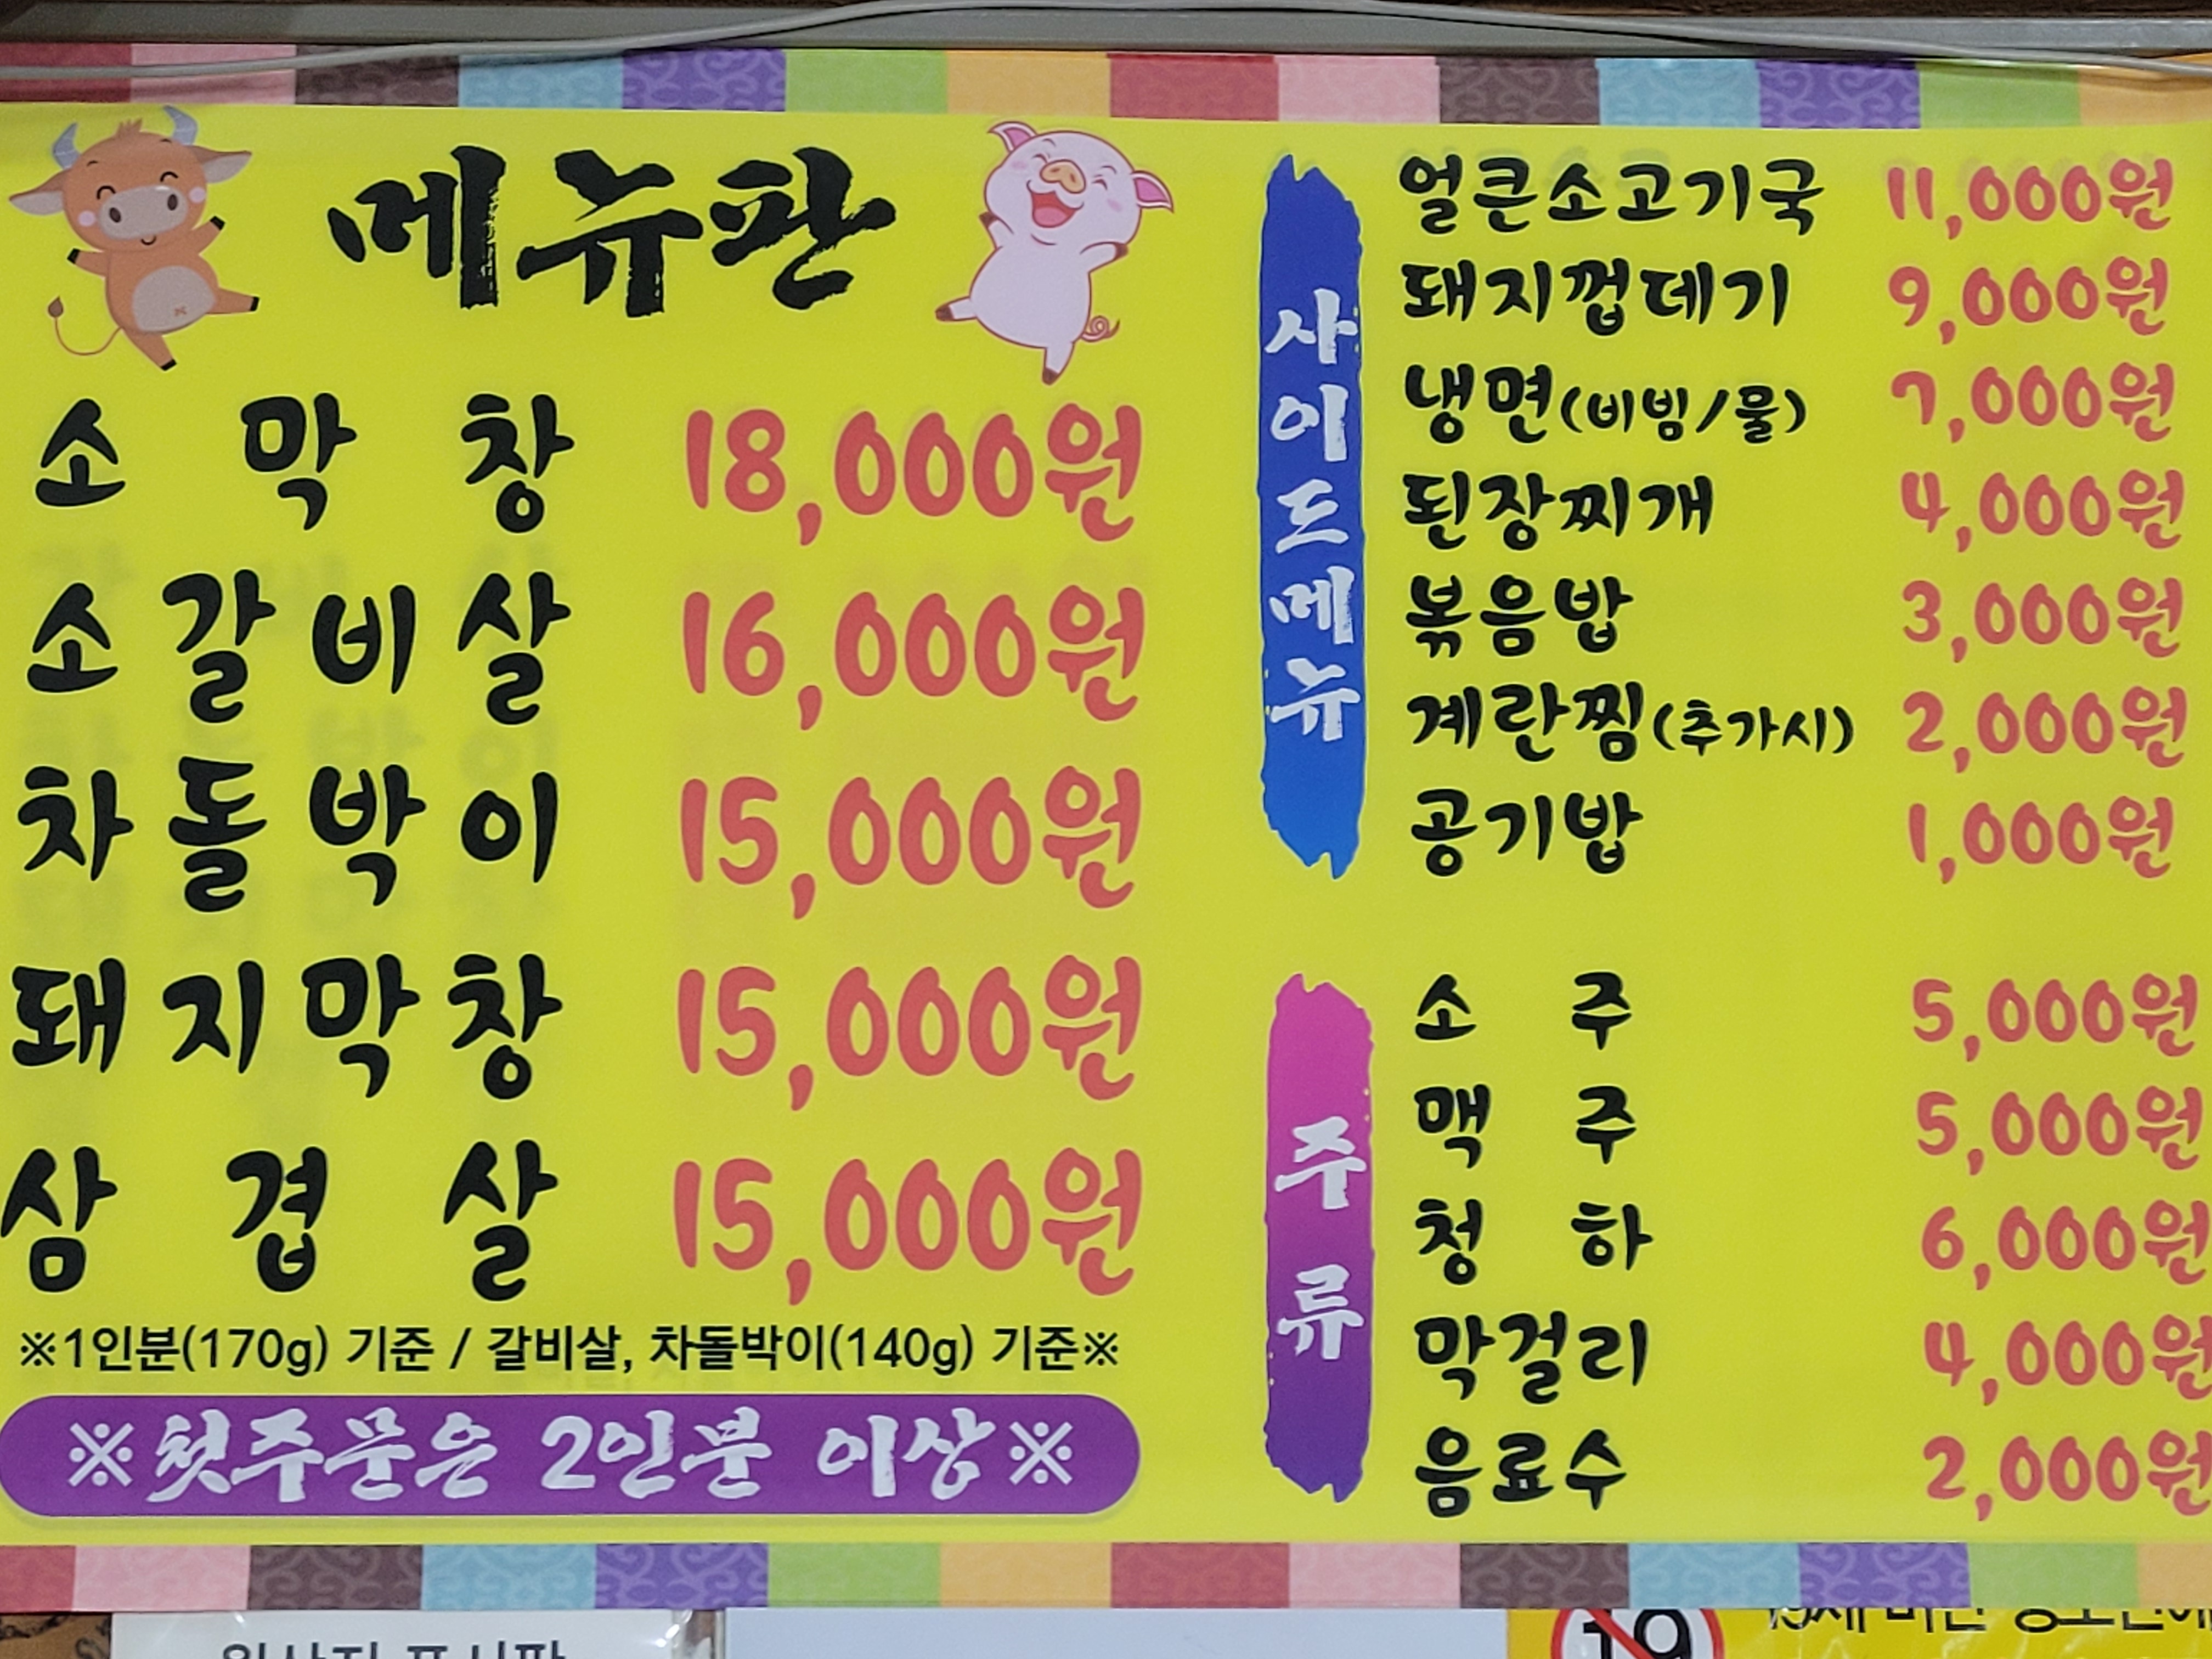 메뉴판
소막창 18,000원
소갈비살 16,000원
차돌박이 15,000원
돼지막창 15,000원
삼겹살 15,000원
※1인분(170g) 기준 / 갈비살, 차돌박이(140g) 기준※
※첫주문은 2인분 이상※
사이드메뉴
얼큰소고기국 11,000원
돼지껍데기 9,000원
냉면(비빔/물) 7,000원
된장찌개 4,000원
볶음밥 3,000원
계란찜(추가시) 2,000원
공기밥 1,000원
주류
소주 5,000원
맥주 5,000원
청하 6,000원
막걸리 4,000원
음료수 2,000원
19